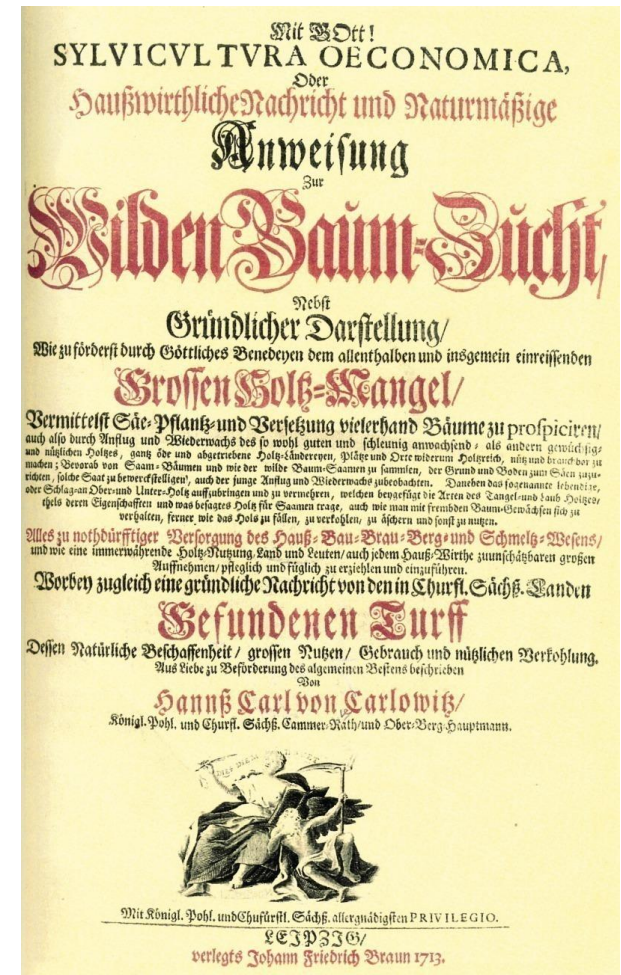 Mit GOtt!
SYLVICVLTVRA OECONOMICA,
Oder
Haußwirthliche Nachricht und Naturmäßige
Anweisung
Zur
Wilden Baum-Zucht,
Nebst
Gründlicher Darstellung/
Wie zu förderst durch Göttliches Benedeyen dem allenthalben und insgemein einreissenden
Grossen Holtz-Mangel/
Vermittelst Säe-Pflantz-und Versetzung vielerhand Bäume zu prospiciren/
auch also durch Anflug und Wiederwachs des so wohl guten und schleunig anwachsend- als andern gewüchsig-
und nützlichen Holtzes, gantz öde und abgetriebene Holtz-Ländereyen, Plätze und Orte widerum Holtzreich, nütz und brauchbar zu
machen; Bevorab von Saam-Bäumen und wie der wilde Baum-Saamen zu sammlen, der Grund und Boden zum Säen zuzu-
richten, solche Saat zu bewerckstelligen, auch der junge Anflug und Wiederwachs zubeobachten. Daneben das sogenannte lebendige,
oder Schlag-an Ober-und Unter-Holtz auffzubringen und zu vermehren, welchen beygefügt die Arten des Tangel-und Laub Holtzes/
theils deren Eigenschafften und was besagtes Holtz für Saamen trage, auch wie man mit frembden Baum-Gewächsen sich zu
verhalten, ferner wie das Holtz zu fällen, zu verkohlen, zu äschern und sonst zu nutzen.
Alles zu nothdürfftiger Versorgung des Hauß-Bau-Brau-Berg-und Schmeltz-Wesens/
und wie eine immerwährende Holtz-Nutzung, Land und Leuten/ auch jedem Hauß-Wirthe zu unschätzbaren großen
Auffnehmen/ pfleglich und füglich zu erziehlen und einzuführen.
Worbey zugleich eine gründliche Nachricht von den in Churfl. Sächß. Landen
Gefundenen Turff
Dessen Natürliche Beschaffenheit/ grossen Nutzen/ Gebrauch und nützlichen Verkohlung.
Aus Liebe zu Beförderung des algemeinen Bestens beschrieben
Von
Hannß Carl von Carlowitz/
Königl. Pohl. und Churfl. Sächß. Cammer-Rath/ und Ober-Berg-Hauptmann.
Mit Königl. Pohl. und Chufürstl. Sächß. allergnädigsten PRIVILEGIO.
LEIPZIG/
verlegts Johann Friedrich Braun 1713.